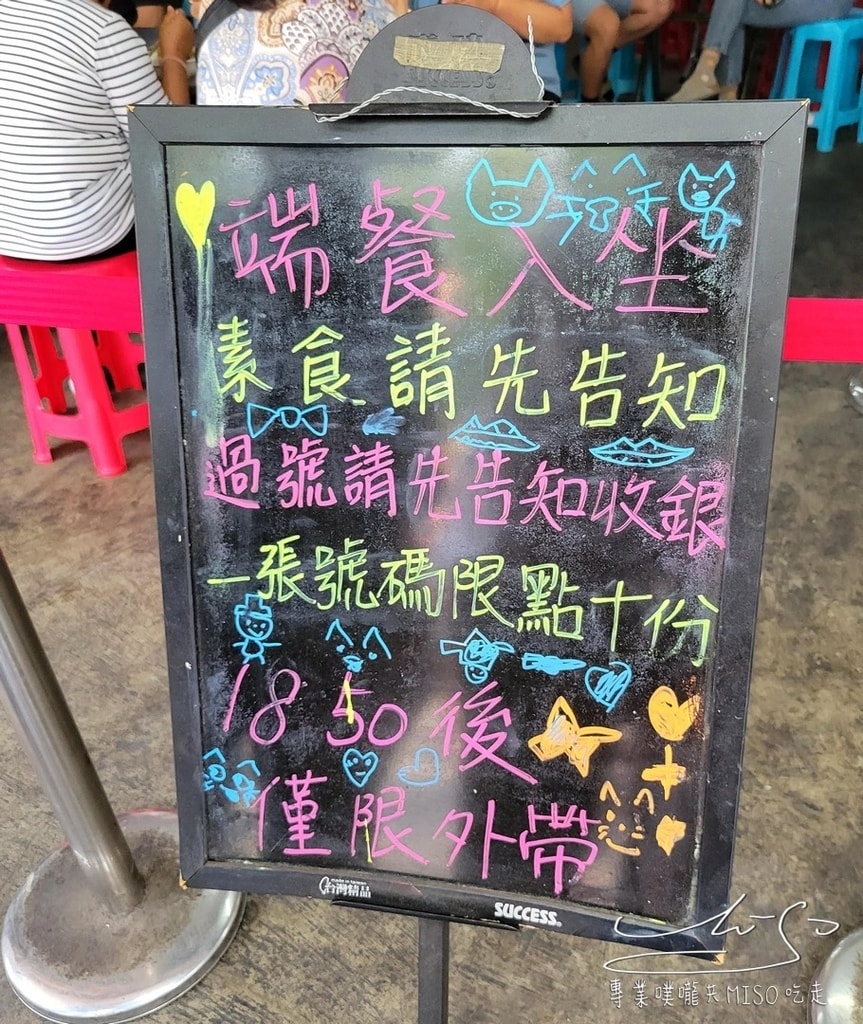 端餐入坐
素食請先告知
過號請先告知收銀
一張號碼限點十份
18 50後
僅限外帶
made in taiwan
台灣精品
SUCCESS®
MISO
專業噗嚨共MISO吃走